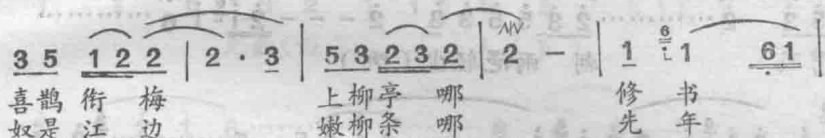 3 5 1 2 2 | 2 · 3 | 5 3 2 3 2 | 2 – | 1 6 1 6 1 |
喜鹊 衔 梅 上柳亭 哪 修 书
奴是 江 边 嫩柳条 哪 先 年